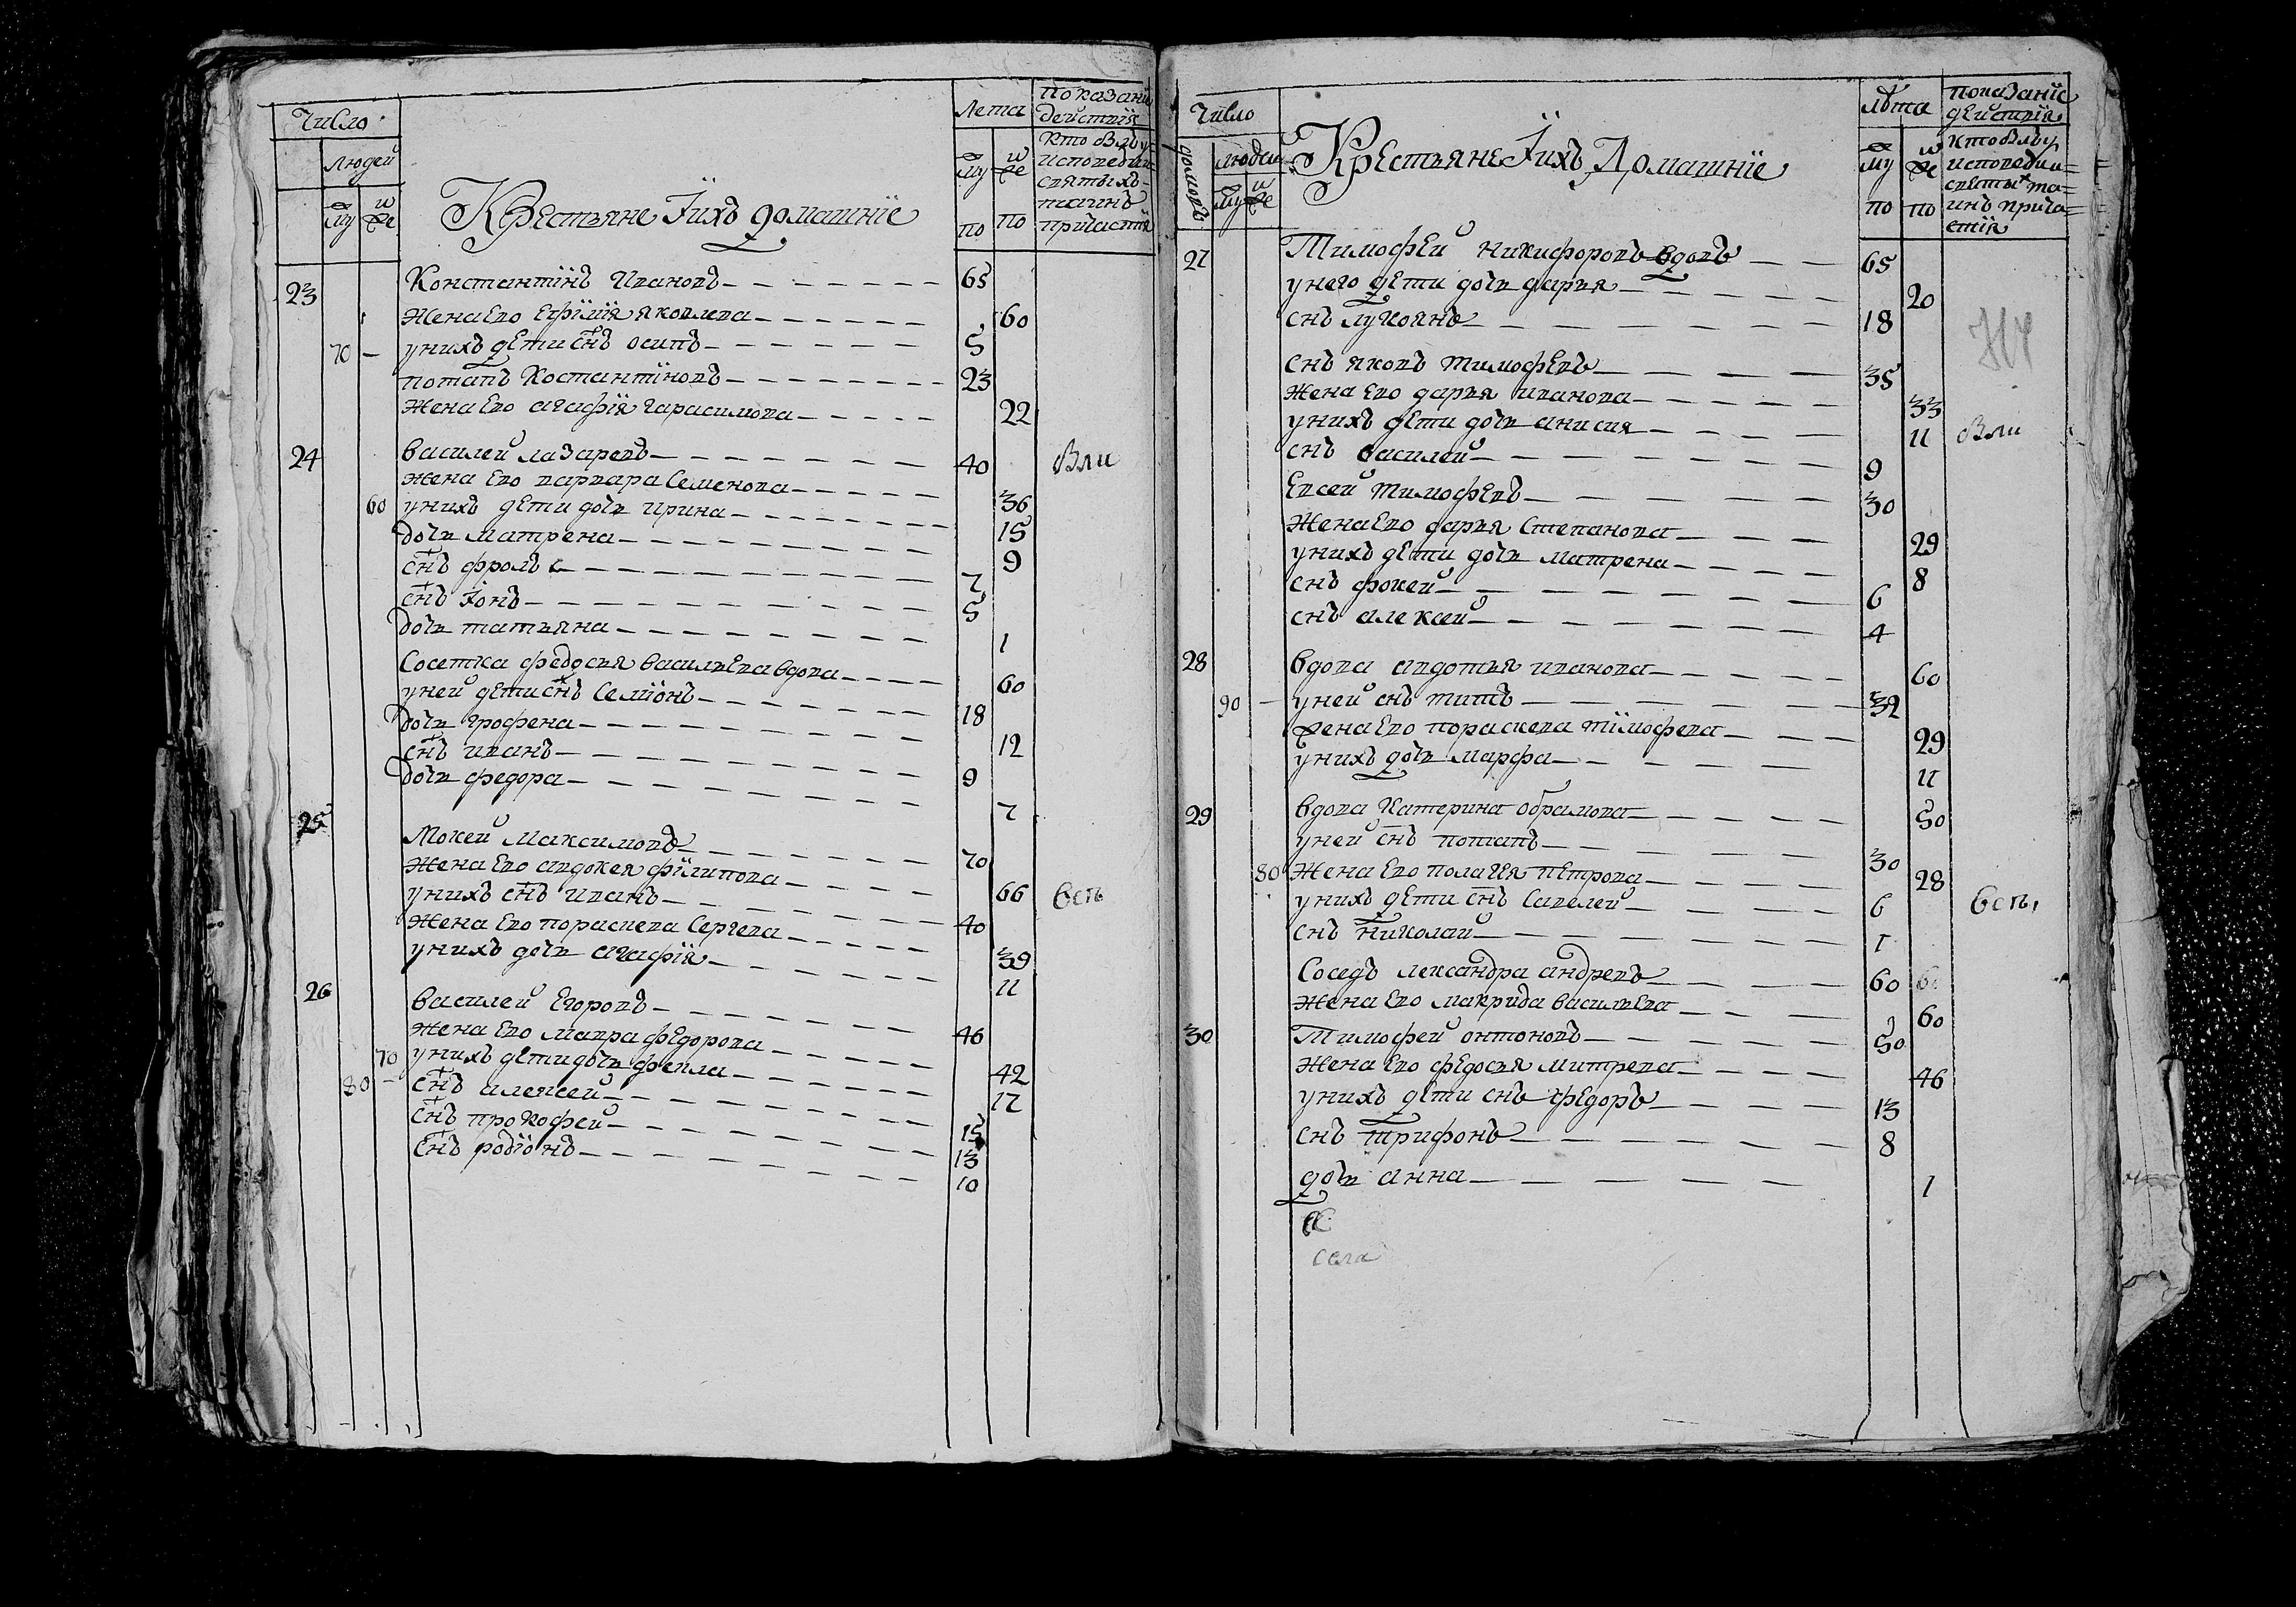 Число
Людей
му же
Крестьяне Їихъ домашнїе
Лета
му же
по по
показани
действия
кто былъ у
исповеди и
святыхъ
таинъ
причастия
23 Константїнъ Ивановъ 65
Жена Ево Ефїмїя яковлева 60
70 – унихъ дети снъ осипъ 5
потапъ Костантїновъ 23
Жена Ево агафїя гарасимова 22
24 Василей лазаревъ 40
Жена Ево варвара Семенова 36
60 унихъ дети дочь ирина 15
дочь матрена 9
снъ фролъ 7
снъ Їонъ 5
дочь татьяна 1
Соседка федосья Васильева вдова 60
уней дети снъ Семїонъ 18
дочь грофена 12
снъ иванъ 9
дочь федора 7
25 Мокей Максимовъ 70
Жена Ево авдокея фїлипова 66
унихъ снъ иванъ 40
Жена Ево пораскева Сергева 39
унихъ дочь агафїя 11
26 Василей Егоровъ 46
Жена Ево мавра фЕдорова 42
70 унихъ дети дочь фекла 17
80 – снъ алексей 15
снъ прокофей 13
снъ родїонъ 10
Число
домовъ
людей
му же
КрЕстьянЕ Їихъ Домашнїе
лѣта
му же
по по
показанїе
действия
кто былъ у
исповеди и
святы та=
инъ прича=
стїя
27 Тимофей никифоровъ вдовъ 65
унего дети дочь дарья 20
снъ лукоянъ 18
снъ яковъ тимофЕвъ 35
Жена Ево дарья иванова 33
унихъ дети дочь анисия 11
снъ василей 9
Евсей тимофЕвъ 30
Жена Ево дарья Степанова 29
унихъ дети дочь матрена 8
снъ фокей 6
снъ алексей 4
28 вдова авдотья иванова 60
90 – уней снъ титъ 32
жена Ево пораскева тїмофева 29
унихъ дочь марфа 11
29 вдова катерина обрамова 50
уней снъ потапъ 30
80 Жена Ево полагея пЕтрова 28
унихъ дЕти снъ Савелей 6
снъ николай 1
Соседъ лександра андревъ 60
Жена Ево макрида васильЕва 60
30 Тимофей онтоновъ 50
Жена Ево фЕдосья митрева 46
унихъ дЕти снъ фЕдоръ 13
снъ трифонъ 8
дочь анна 1
села